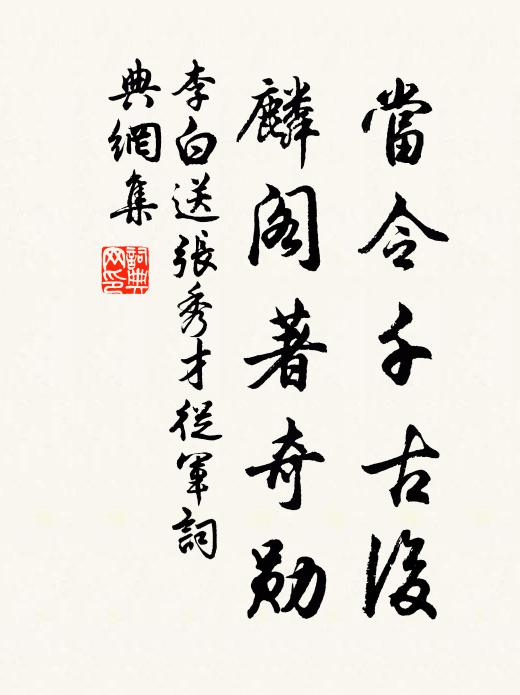 當令千古後
麟阁著奇勋
李白送張秀才從軍詞
典網集
詞典
网印